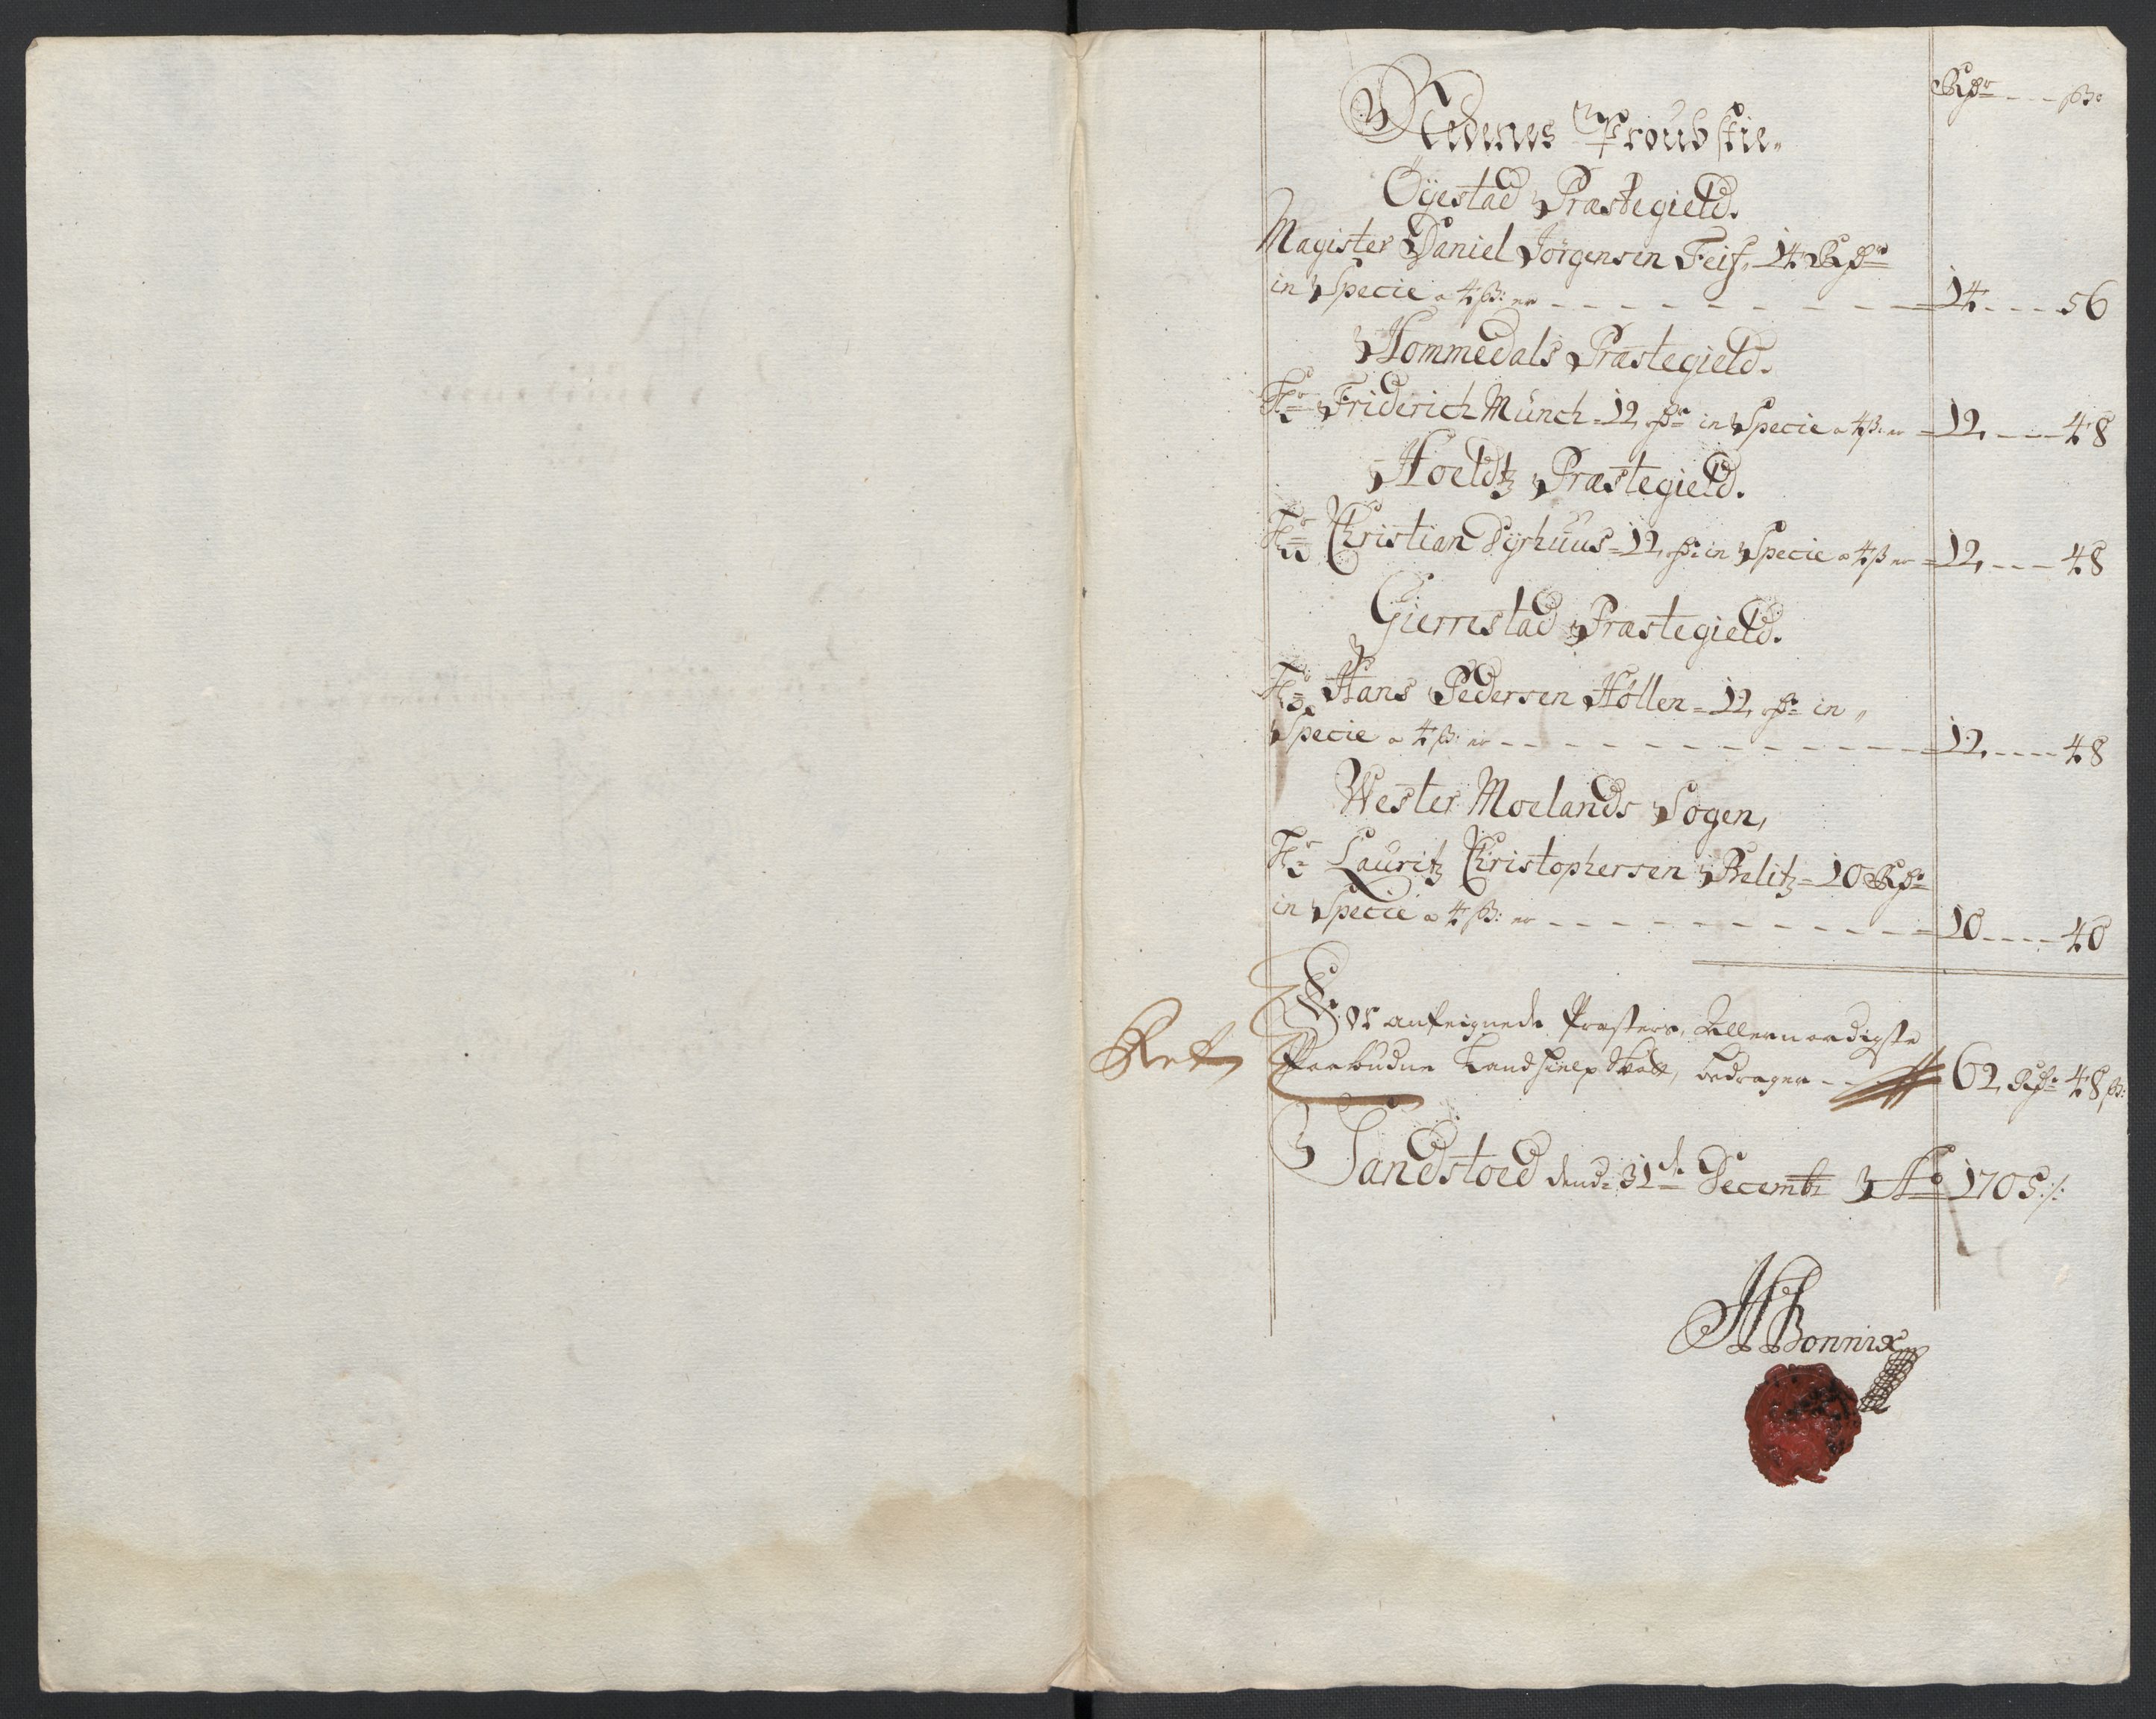 Rdr - - - ß:
Nedenes Proubstie,
Öyestad Præstegield.
Magister Daniel Jörgensen Feif, 14 Rdr
in Specie a 4 ß: er - - - 14 - - - 56
Hommedals Præstegield.
Hr Friderich Münch = 12 dr in Specie a 4 ß: er = 12, - - - 48
Hoeldtz Præstegield.
Hr Christian Dyrhuus = 12 dr: in Specie a 4 ß er = 12, - - - 48
Gierrestad Præstegield.
Hr Hans Pedersen Höllen = 12 dr in
Specie a 4 ß: er - - - 12, - - - 48
Wester Moelands Sogen,
Hr Lauritz Christophersen Belitz = 10 Rdr
in Specie a 4 ß: er - - - 10 - - - 40
For Præsters, Allernaadigste
Paabudne Landhielp Skatt, bedragen - - 62 Rdr 48 ß:
Sandstoed dend: 31de Decemb: Ao 1705 ./.
HBonnix